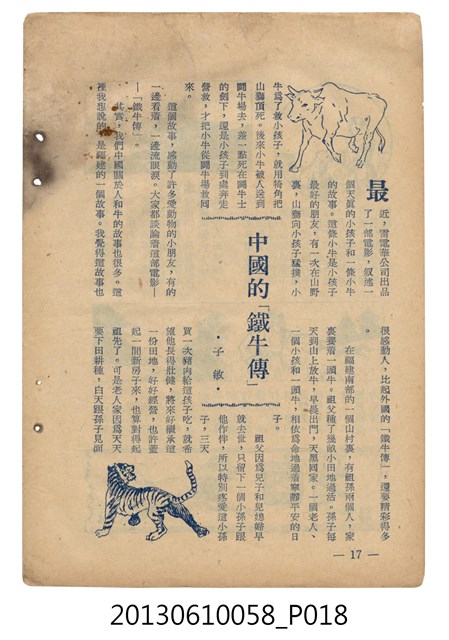 中國的「鐵牛傳」
・子敏・
最近,雷電華公司出品
了一部電影,叙述一
個天眞的小孩子和一條小牛
的故事。這條小牛是小孩子
最好的朋友,有一次在山野
裏,山獅向小孩子猛撲,小
牛爲了救小孩子,就用犄角把
山獅頂死。後來小牛被人送到
鬪牛場去,差一點死在鬪牛士
的劍下,還是小孩子到處奔走
營救,才把小牛從鬪牛場救回
來。
這個故事,感動了許多愛動物的小朋友,有的
一邊看着,一邊流眼淚。大家都談論着這部電影—
—「鐵牛傳」。
其實,我們中國關於人和牛的故事也很多。這
裡我想說的,是福建的一個故事。我覺得這故事也
很感動人,比起外國的「鐵牛傳」,還要精彩得多
。
在福建南部的一個山村裏,有祖孫兩個人,家
裏養着一頭牛。祖父種了幾畝小田地過活。孫子每
天到山上放牛,早晨出門,天黑回家。一個老人、
一個小孩和一頭牛,相依爲命地過着寧靜平安的日
子。
祖父因爲兒子和兒媳婦早
就去世,只留下一個小孫子跟
他作伴,所以特別疼愛這小孫
子,三天
買一次豬肉給這孩子吃,就希
望他長得壯健,將來好繼承這
一份田地,好好經營,也許蓋
起一間新房子來,也算對得起
祖先了。可是老人家因爲天天
要下田耕種,白天跟孫子見面
— 17 —
20130610058_P018